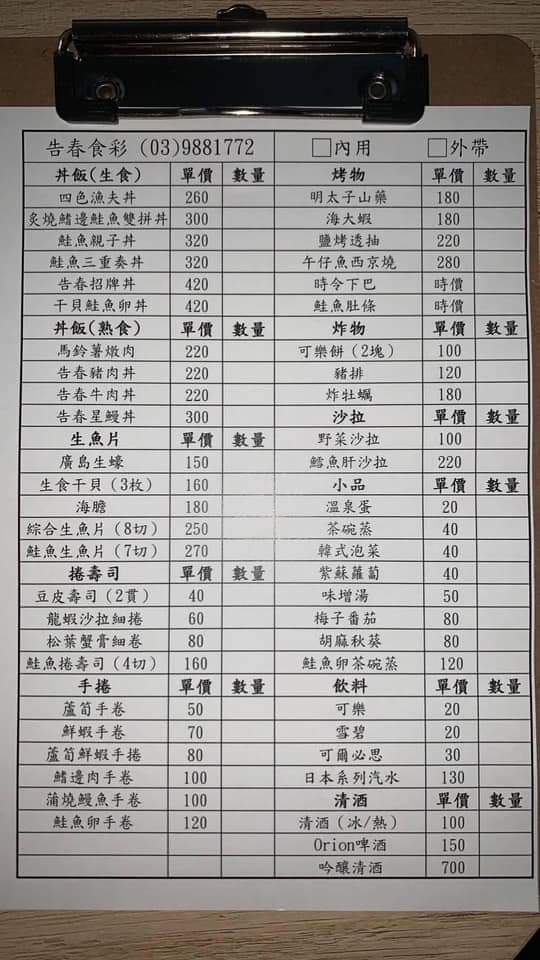 告春食彩 (03)9881772 □內用 □外帶
丼飯(生食) 單價 數量 烤物 單價 數量
四色漁夫丼 260 明太子山藥 180
炙燒鰭邊鮭魚雙拼丼 300 海大蝦 180
鮭魚親子丼 320 鹽烤透抽 220
鮭魚三重奏丼 320 午仔魚西京燒 280
告春招牌丼 420 時令下巴 時價
干貝鮭魚卵丼 420 鮭魚肚條 時價
丼飯(熟食) 單價 數量 炸物 單價 數量
馬鈴薯燉肉 220 可樂餅(2塊) 100
告春豬肉丼 220 豬排 120
告春牛肉丼 220 炸牡蠣 180
告春星鰻丼 300 沙拉 單價 數量
生魚片 單價 數量 野菜沙拉 100
廣島生蠔 150 鱈魚肝沙拉 220
生食干貝(3枚) 160 小品 單價 數量
海膽 180 溫泉蛋 20
綜合生魚片(8切) 250 茶碗蒸 40
鮭魚生魚片(7切) 270 韓式泡菜 40
捲壽司 單價 數量 紫蘇蘿蔔 40
豆皮壽司(2貫) 40 味增湯 50
龍蝦沙拉細捲 60 梅子番茄 80
松葉蟹膏細卷 80 胡麻秋葵 80
鮭魚捲壽司(4切) 160 鮭魚卵茶碗蒸 120
手捲 單價 數量 飲料 單價 數量
蘆筍手卷 50 可樂 20
鮮蝦手卷 70 雪碧 20
蘆筍鮮蝦手捲 80 可爾必思 30
鰭邊肉手卷 100 日本系列汽水 130
蒲燒鰻魚手卷 100 清酒 單價 數量
鮭魚卵手卷 120 清酒(冰/熱) 100
Orion啤酒 150
吟釀清酒 700